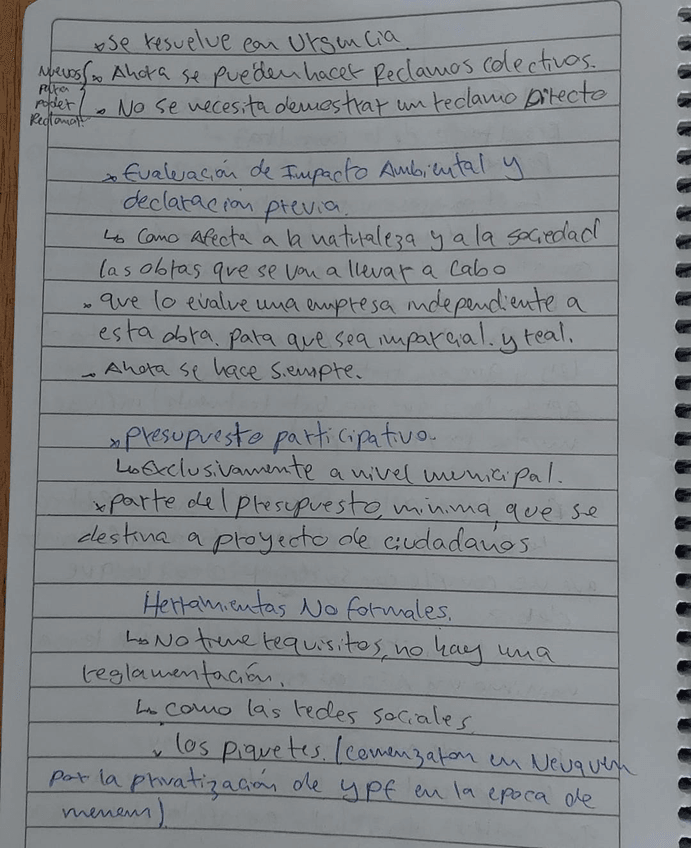 *Se resuelve con Urgencia
Nuevos para poder Reclamar.
→ Ahora se pueden hacer Reclamos colectivos.
→ No se necesita demostrar un reclamo Directo
* Evaluación de Impacto Ambiental y
declaración previa.
↳ Como Afecta a la naturaleza y a la sociedad
las obras que se van a llevar a cabo
→ que lo evalue una empresa independiente a
esta obra. para que sea imparcial. y real.
→ Ahora se hace siempre.
*presupuesto participativo.
↳Exclusivamente a nivel municipal.
*parte del presupuesto, minima, que se
destina a proyecto de ciudadanos
Herramientas No formales.
↳No tiene requisitos, no hay una
reglamentación.
↳ como las redes sociales
los piquetes. (comenzaron en Neuquen
por la privatización de ypf en la epoca de
menem)